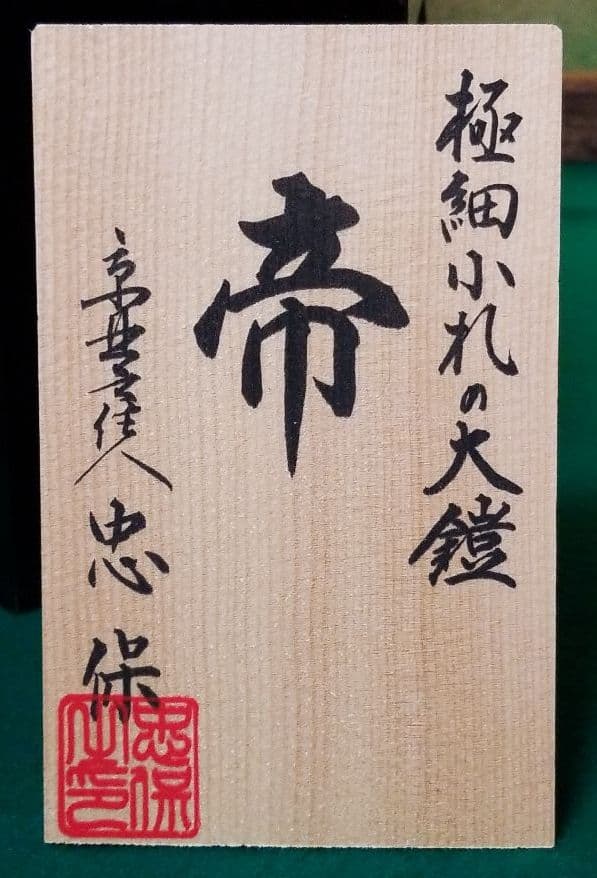 極細小札の大鎧
帝
京甲匠住人 忠保
忠保之印